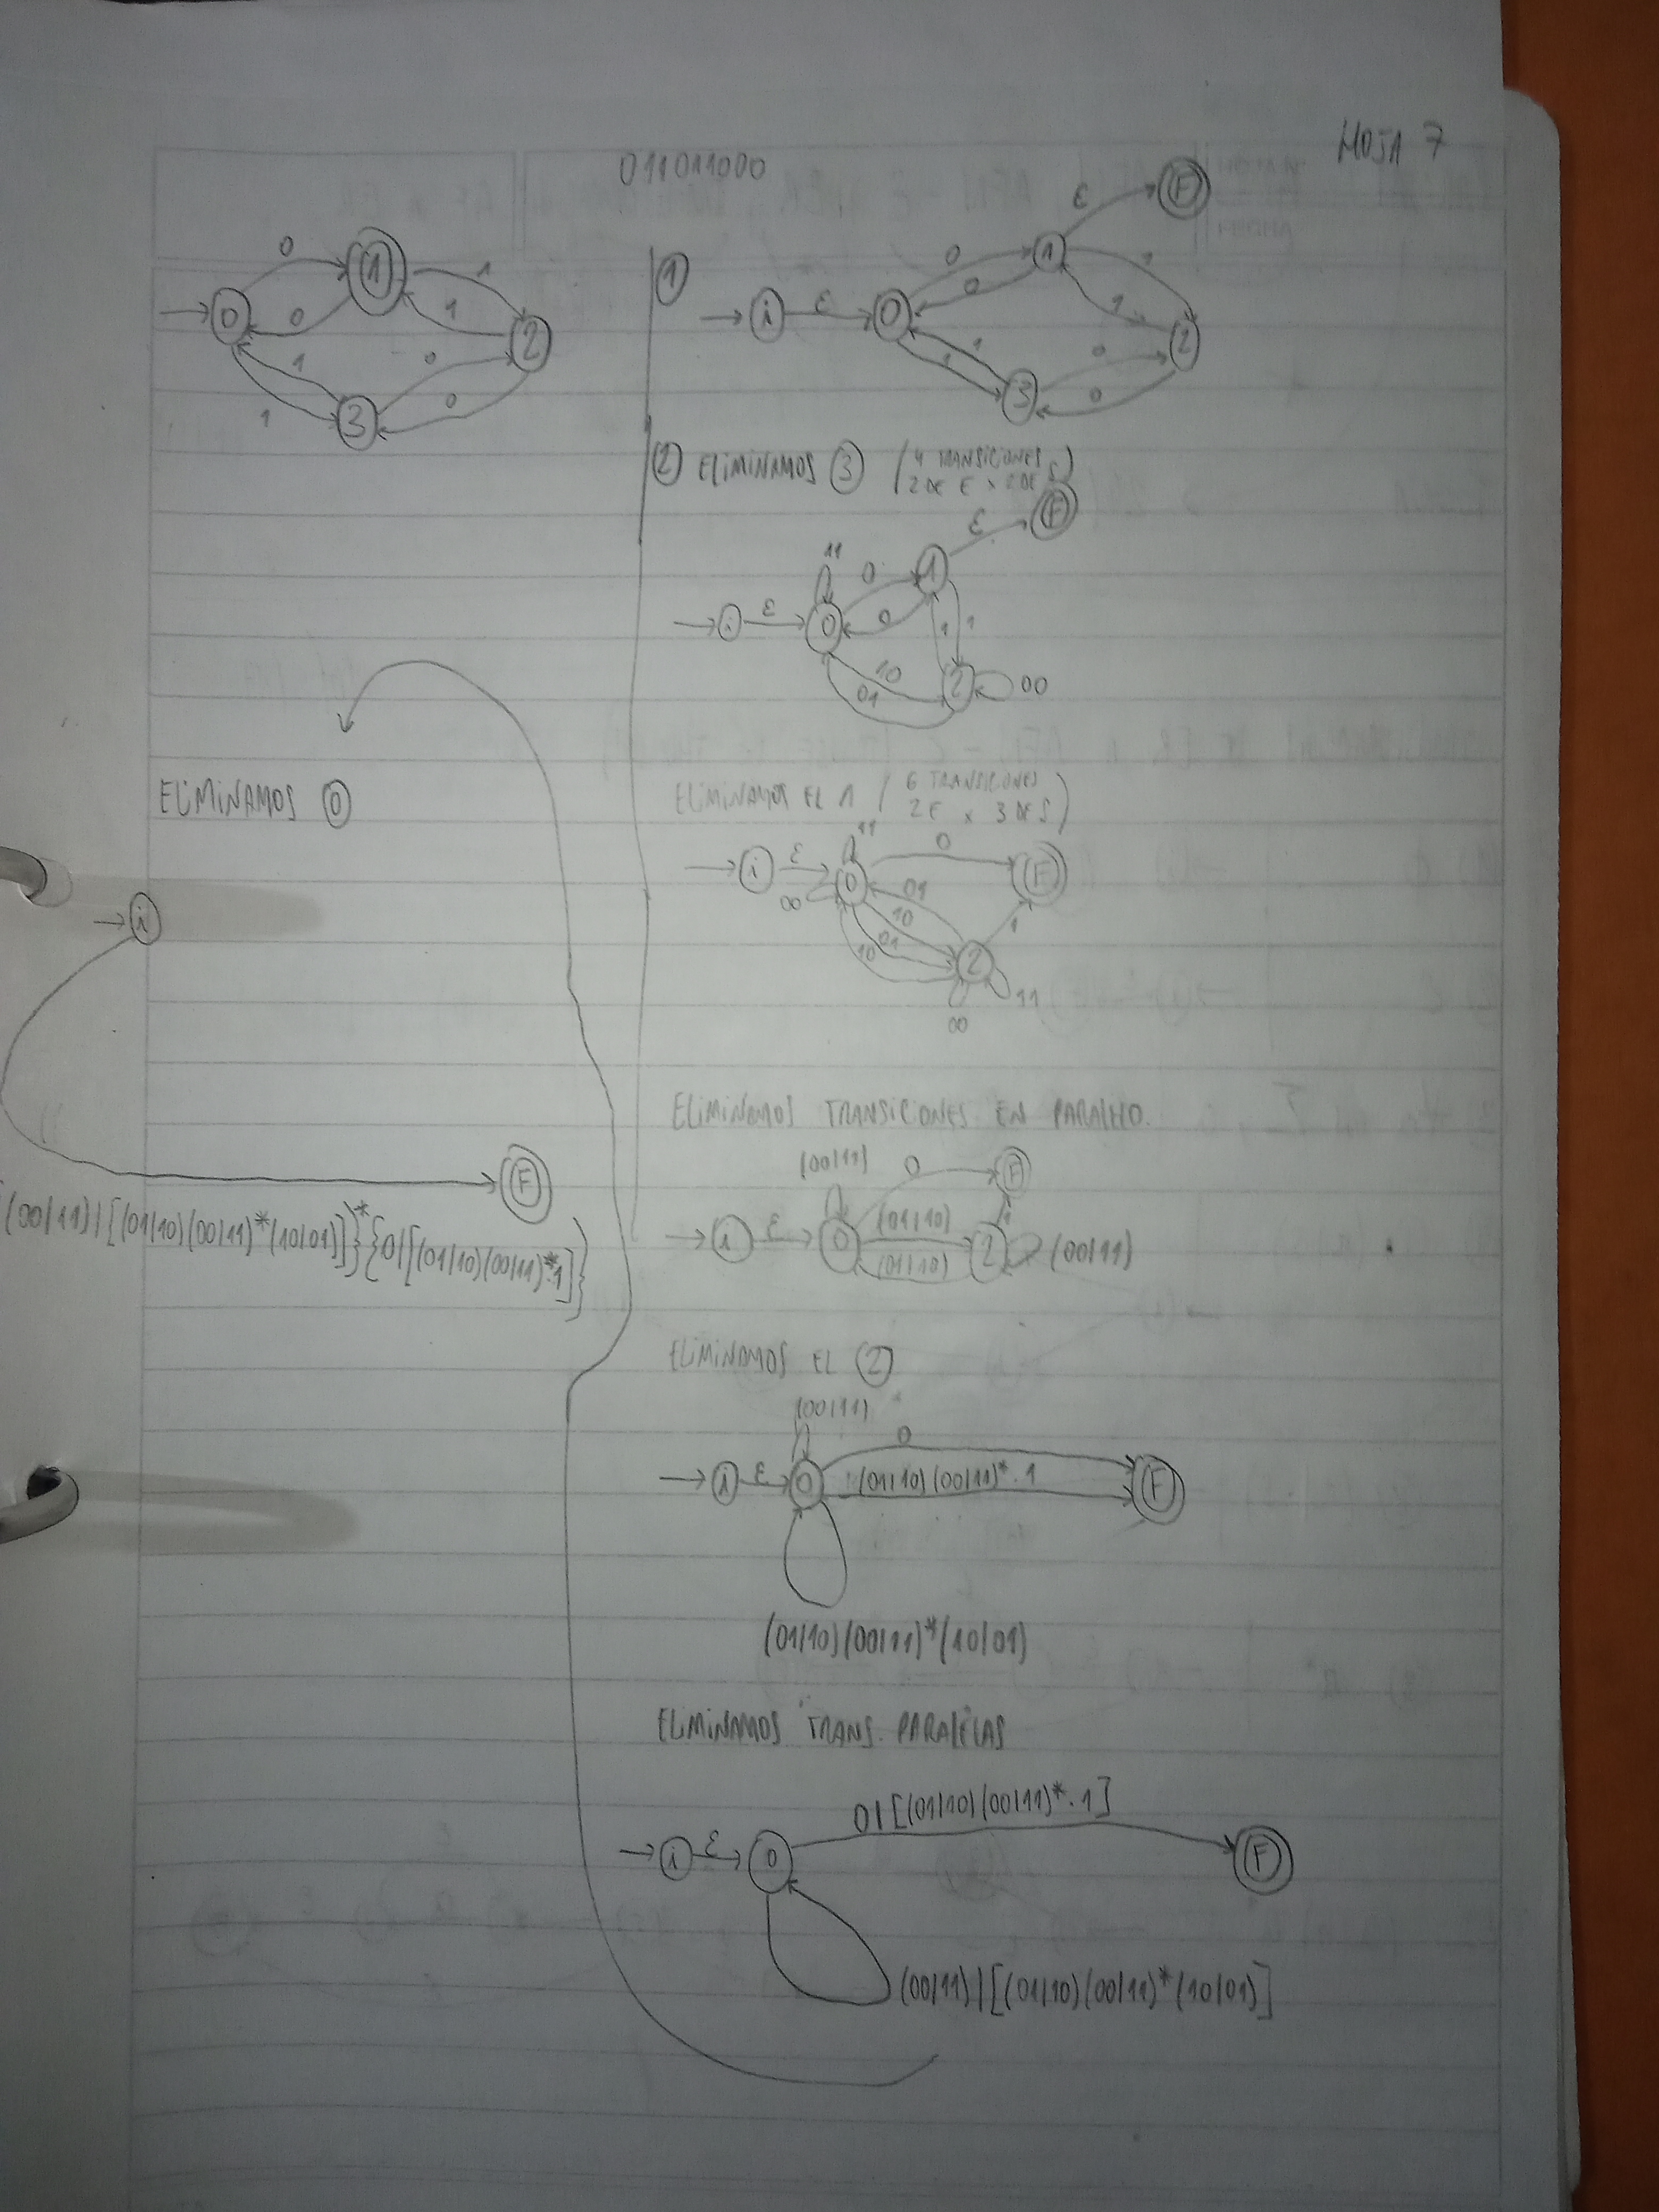 HOJA 7
011011000
0 1 2 3
0 0 1 1 1 1 0 0
① i ε 0 1 2 3 ε F
0 0 1 1 1 1 0 0
② ELIMINAMOS ③ (4 TRANSICIONES
2 DE E x 2 DE S)
i ε 0 11 0 0 1 ε F
1 1
10 01 2 00
ELIMINAMOS EL 1 (6 TRANSICIONES
2 E x 3 DE S)
i ε 0 11 00 0 F
01 10 01 10 2 1
00 11
ELIMINAMOS TRANSICIONES EN PARALELO.
(00|11) 0 F
i ε 0 (01|10) 2 1 (00|11)
(01|10)
ELIMINAMOS EL ②
(00|11)
0
i ε 0 (01|10)(00|11)*·1 F
(01|10)(00|11)*(10|01)
ELIMINAMOS TRANS. PARALELAS
0|[(01|10)(00|11)*·1]
i ε 0 F
(00|11)|[(01|10)(00|11)*(10|01)]
ELIMINAMOS ⓪
i
F
(00|11)|[(01|10)(00|11)*(10|01)]}*{0|[(01|10)(00|11)*·1]}